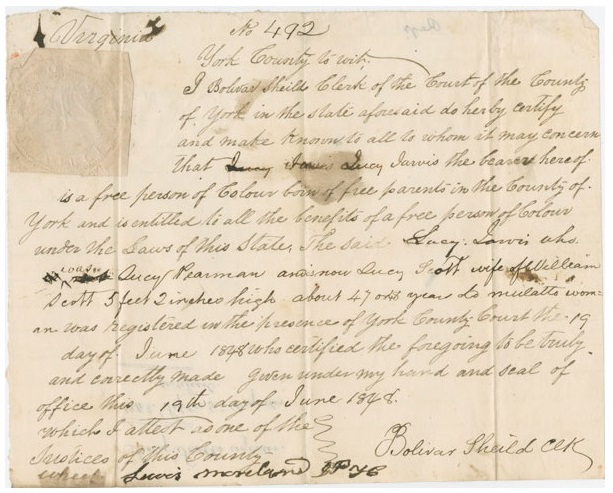 Virginia No 492
York County to wit;
I Bolivar Sheild Clerk of the Court of the County
of York in the state aforesaid do herby certify
and make known to all to whom it may concern
that Lucy Jarvis the bearer hereof
is a free person of Colour born of free parents in the County of
York and is entitled to all the benefits of a free person of Colour
under the Laws of this State, The said Lucy Jarvis who
was Lucy Pearman and is now Lucy Scott wife of William
Scott 5 feet 2 inches high about 47 or 48 years old mulatto wom-
an was registered in the presence of York County Court the 19
day of June 1848 who certified the foregoing to be truly
and correctly made given under my hand and seal of
office this 19th day of June 1848.
which I attest as one of the
Justices of this County
Bolivar Sheild Clk
Lewis Moreland JP YC